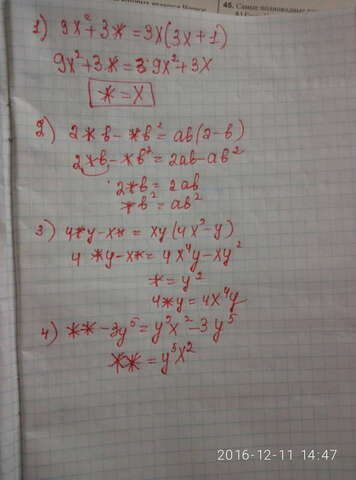 45. Самые полноводные р
1) 9x² + 3* = 3x(3x + 1)
9x² + 3* = 3 9x² + 3x
* = x
2) 2*b - *b² = ab(2 - b)
2*b - *b² = 2ab - ab²
2*b = 2ab
*b² = ab²
3) 4*y - x* = xy(4x³ - y)
4*y - x* = 4x⁴y - xy²
* = y²
4*y = 4x⁴y
4) ** - 3y⁵ = y³x² - 3y⁵
** = y³x²
2016-12-11 14:47